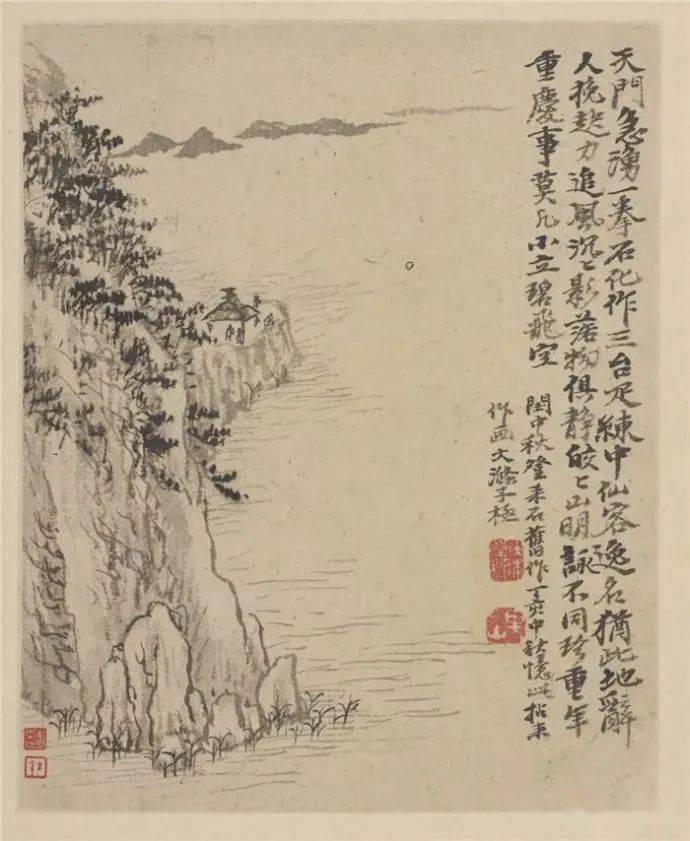 天門急湧一拳石化作三台疋練中仙客逸名猶此地辭
人挽趂力追風沉〻影落物俱靜皎〻山明詠不同珍重年
重慶事莫凡小立碧飛空
閏中秋登采石舊作丁亥中秋憶此拈来
作画大滌子極